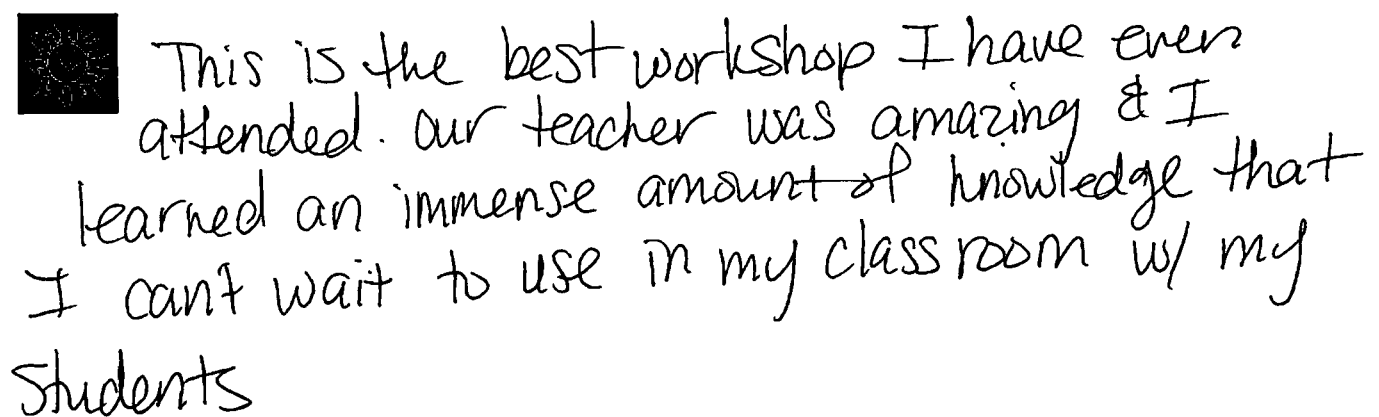 This is the best workshop I have ever
attended. Our teacher was amazing & I
learned an immense amount of knowledge that
I can't wait to use in my classroom w/ my
students